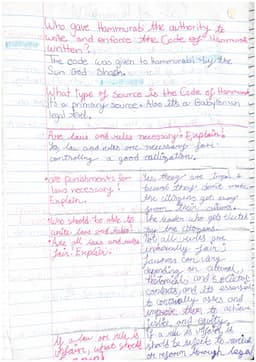 Who gave Hammurabi the authority to
write and enforce the Code of Hammurabi
written?
The code was given to hammurabi by the
Sun God Shash.
What type of source is the Code of Hammurabi
Its a primary source. Also its a Babylonian
legal text.
Are laws and rules necessary? Explain.
Yes law and rules are necessary for
controlling a good
• are punishments for
law necessary?
Explain.
Yes, they are
they don't make
the citizens get away
from their actions.
• Who should be able to
write laws and rules?
the leader who gets elected
by the citizens.
• Are all laws and rules
fair? Explain.
Not all rules are
fair.
fairness can vary
depending on cultural,
historical, and societal
contexts, and its essential
to continually assess and
improve them to achieve
justice and equity.
If a law or rule is
unfair, what should
If a rule is unfair it
should be subject to
or reform through legal